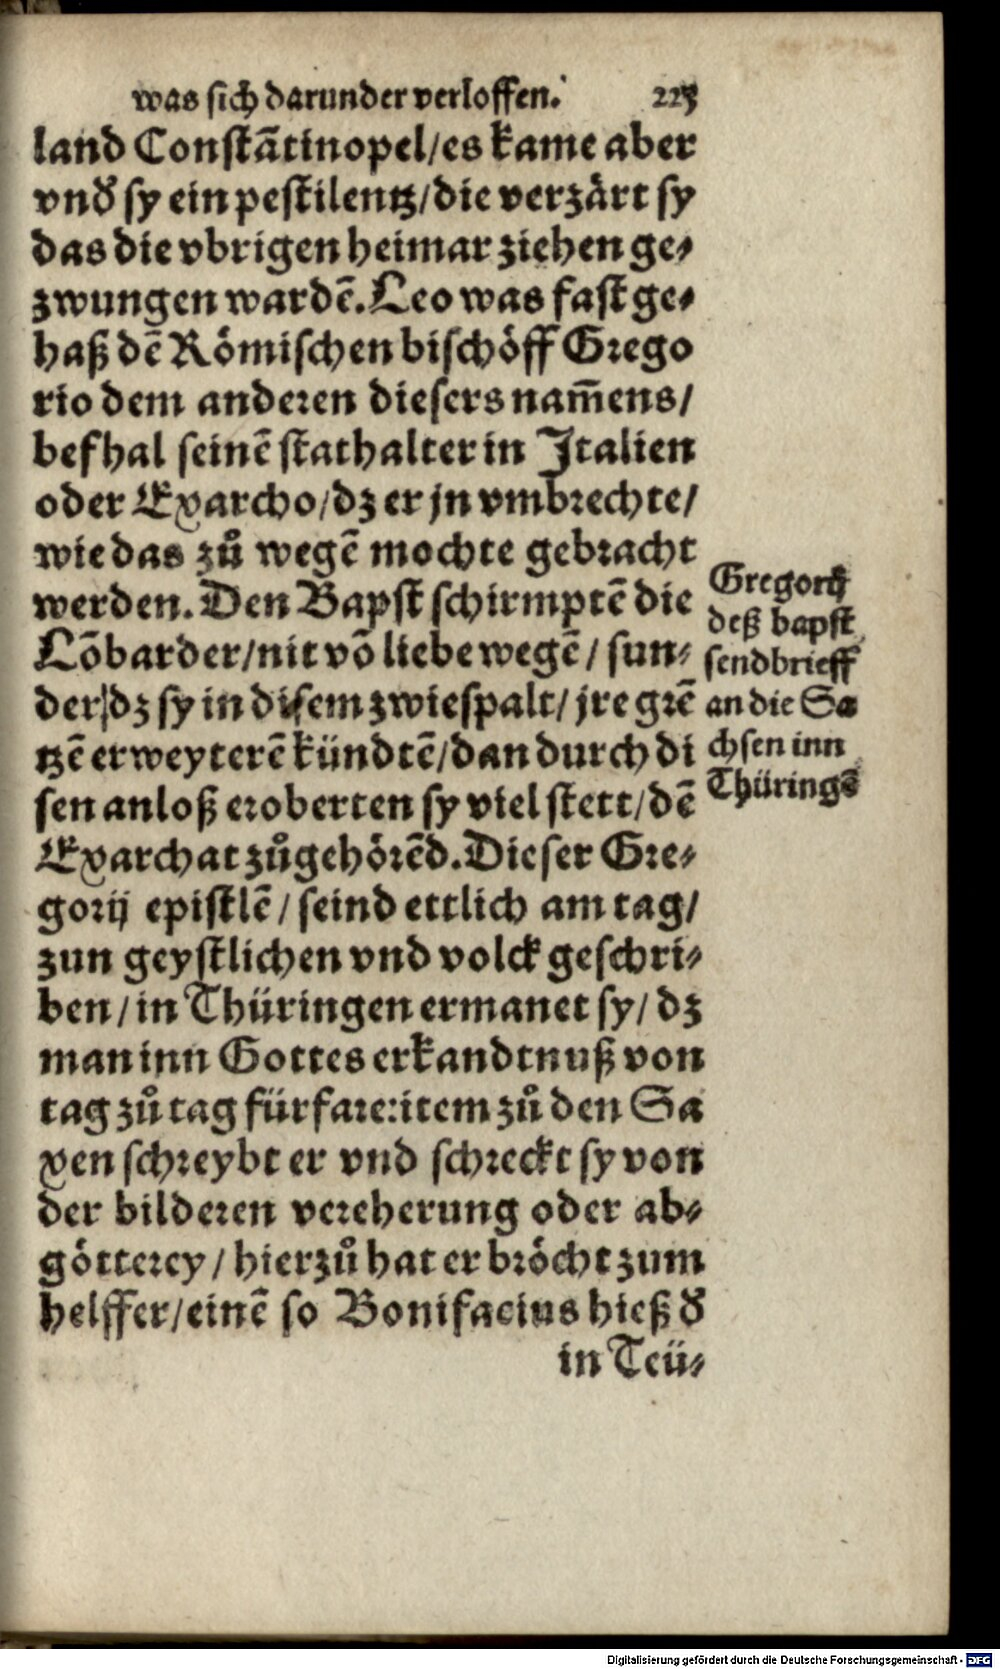 was sich darunder verloffen. 225
land Constãtinopel/es kame aber
vnd̃ sy ein pestilentz/die verzårt sy
das die vbrigen heimar ziehen ge⸗
zwungen wardẽ. Leo was fast ge⸗
haß dẽ Rômischen bischôff Grego
rio dem anderen diesers nam̃ens/
befhal seinẽ stathalter in Italien
oder Exarcho/dz er jn vmbrechte/
wie das zů wegẽ mochte gebracht
werden. Den Bapst schirmptẽ die
Lõbarder/nit võ liebe wegẽ/ sun⸗
der/dz sy in disem zwiespalt/ jre grẽ
tzẽ erweyterẽ kündtẽ/dan durch di
sen anloß eroberten sy viel stett/dẽ
Exarchat zůgehôrẽd. Dieser Gre⸗
gorij epistlẽ/ seind ettlich am tag/
zun geystlichen vnd volck geschri⸗
ben/in Thüringen ermanet sy/ dz
man inn Gottes erkandtnuß von
tag zů tag fürfare: item zů den Sa
xen schreybt er vnd schreckt sy von
der bilderen vereherung oder ab⸗
gôtterey/ hierzů hat er brôcht zum
helffer/einẽ so Bonifacius hieß d̃
in Teü⸗
Gregorij
deß bapst
sendbrieff
an die Sa
chsen inn
Thüringẽ
Digitalisierung gefördert durch die Deutsche Forschungsgemeinschaft - DFG